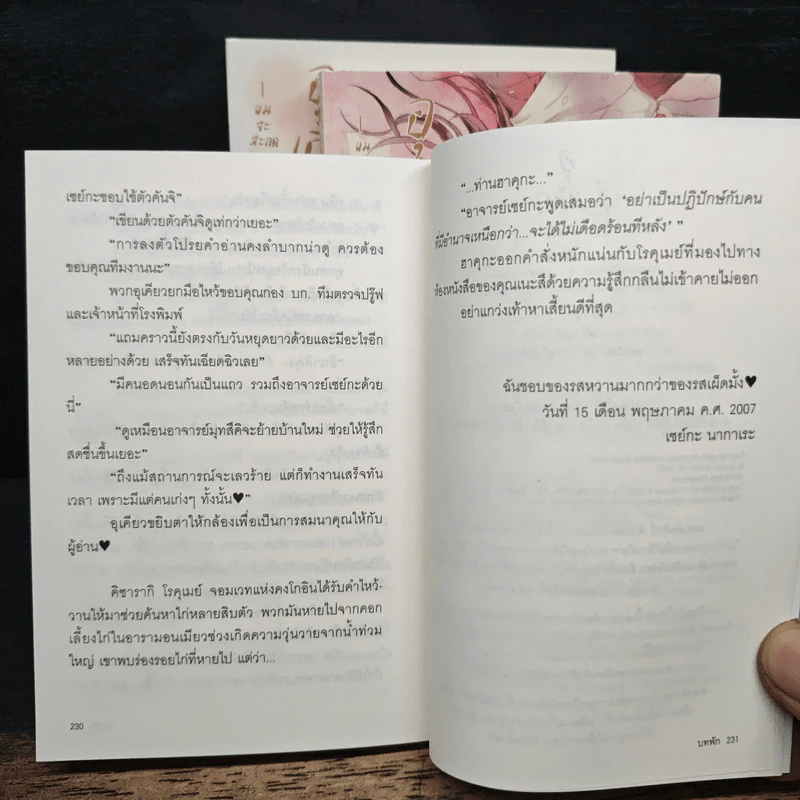 ผม
จะ
เซย์กะชอบใช้ตัวคันจิ"
"เขียนด้วยตัวคันจิดูเท่กว่าเยอะ"
"การลงตัวโปรยคำอ่านคงลำบากน่าดู ควรต้อง
ขอบคุณทีมงานนะ"
พวกอุเคียวยกมือไหว้ขอบคุณกอง บก. ทีมตรวจปรู๊ฟ
และเจ้าหน้าที่โรงพิมพ์
"แถมคราวนี้ยังตรงกับวันหยุดยาวด้วยและมีอะไรอีก
หลายอย่างด้วย เสร็จทันเฉียดฉิวเลย"
"มีคนอดนอนกันเป็นแถว รวมถึงอาจารย์เซย์กะด้วย
นี่"
"ดูเหมือนอาจารย์มุทสึคิจะย้ายบ้านใหม่ ช่วยให้รู้สึก
สดชื่นขึ้นเยอะ"
"ถึงแม้สถานการณ์จะเลวร้าย แต่ก็ทำงานเสร็จทัน
เวลา เพราะมีแต่คนเก่งๆ ทั้งนั้น♥"
อุเคียวขยิบตาให้กล้องเพื่อเป็นการสมนาคุณให้กับ
ผู้อ่าน♥
คิซารากิ โรคุเมย์ จอมเวทแห่งคงโกอินได้รับคำไหว้-
วานให้มาช่วยค้นหาไก่หลายสิบตัว พวกมันหายไปจากคอก
เลี้ยงไก่ในอารามอนเมียวช่วงเกิดความวุ่นวายจากน้ำท่วม
ใหญ่ เขาพบร่องรอยไก่ที่หายไป แต่ว่า...
230
"...ท่านฮาคุกะ..."
"อาจารย์เซย์กะพูดเสมอว่า 'อย่าเป็นปฏิปักษ์กับคน
ที่มีอำนาจเหนือกว่า...จะได้ไม่เดือดร้อนทีหลัง' "
ฮาคุกะออกคำสั่งหนักแน่นกับโรคุเมย์ที่มองไปทาง
ห้องหนังสือของคุณเนะสึด้วยความรู้สึกกลืนไม่เข้าคายไม่ออก
อย่าแกว่งเท้าหาเสี้ยนดีที่สุด
ฉันชอบของรสหวานมากกว่าของรสเผ็ดมั้ง♥
วันที่ 15 เดือน พฤษภาคม ค.ศ. 2007
เซย์กะ นากาเระ
บทพัก 231